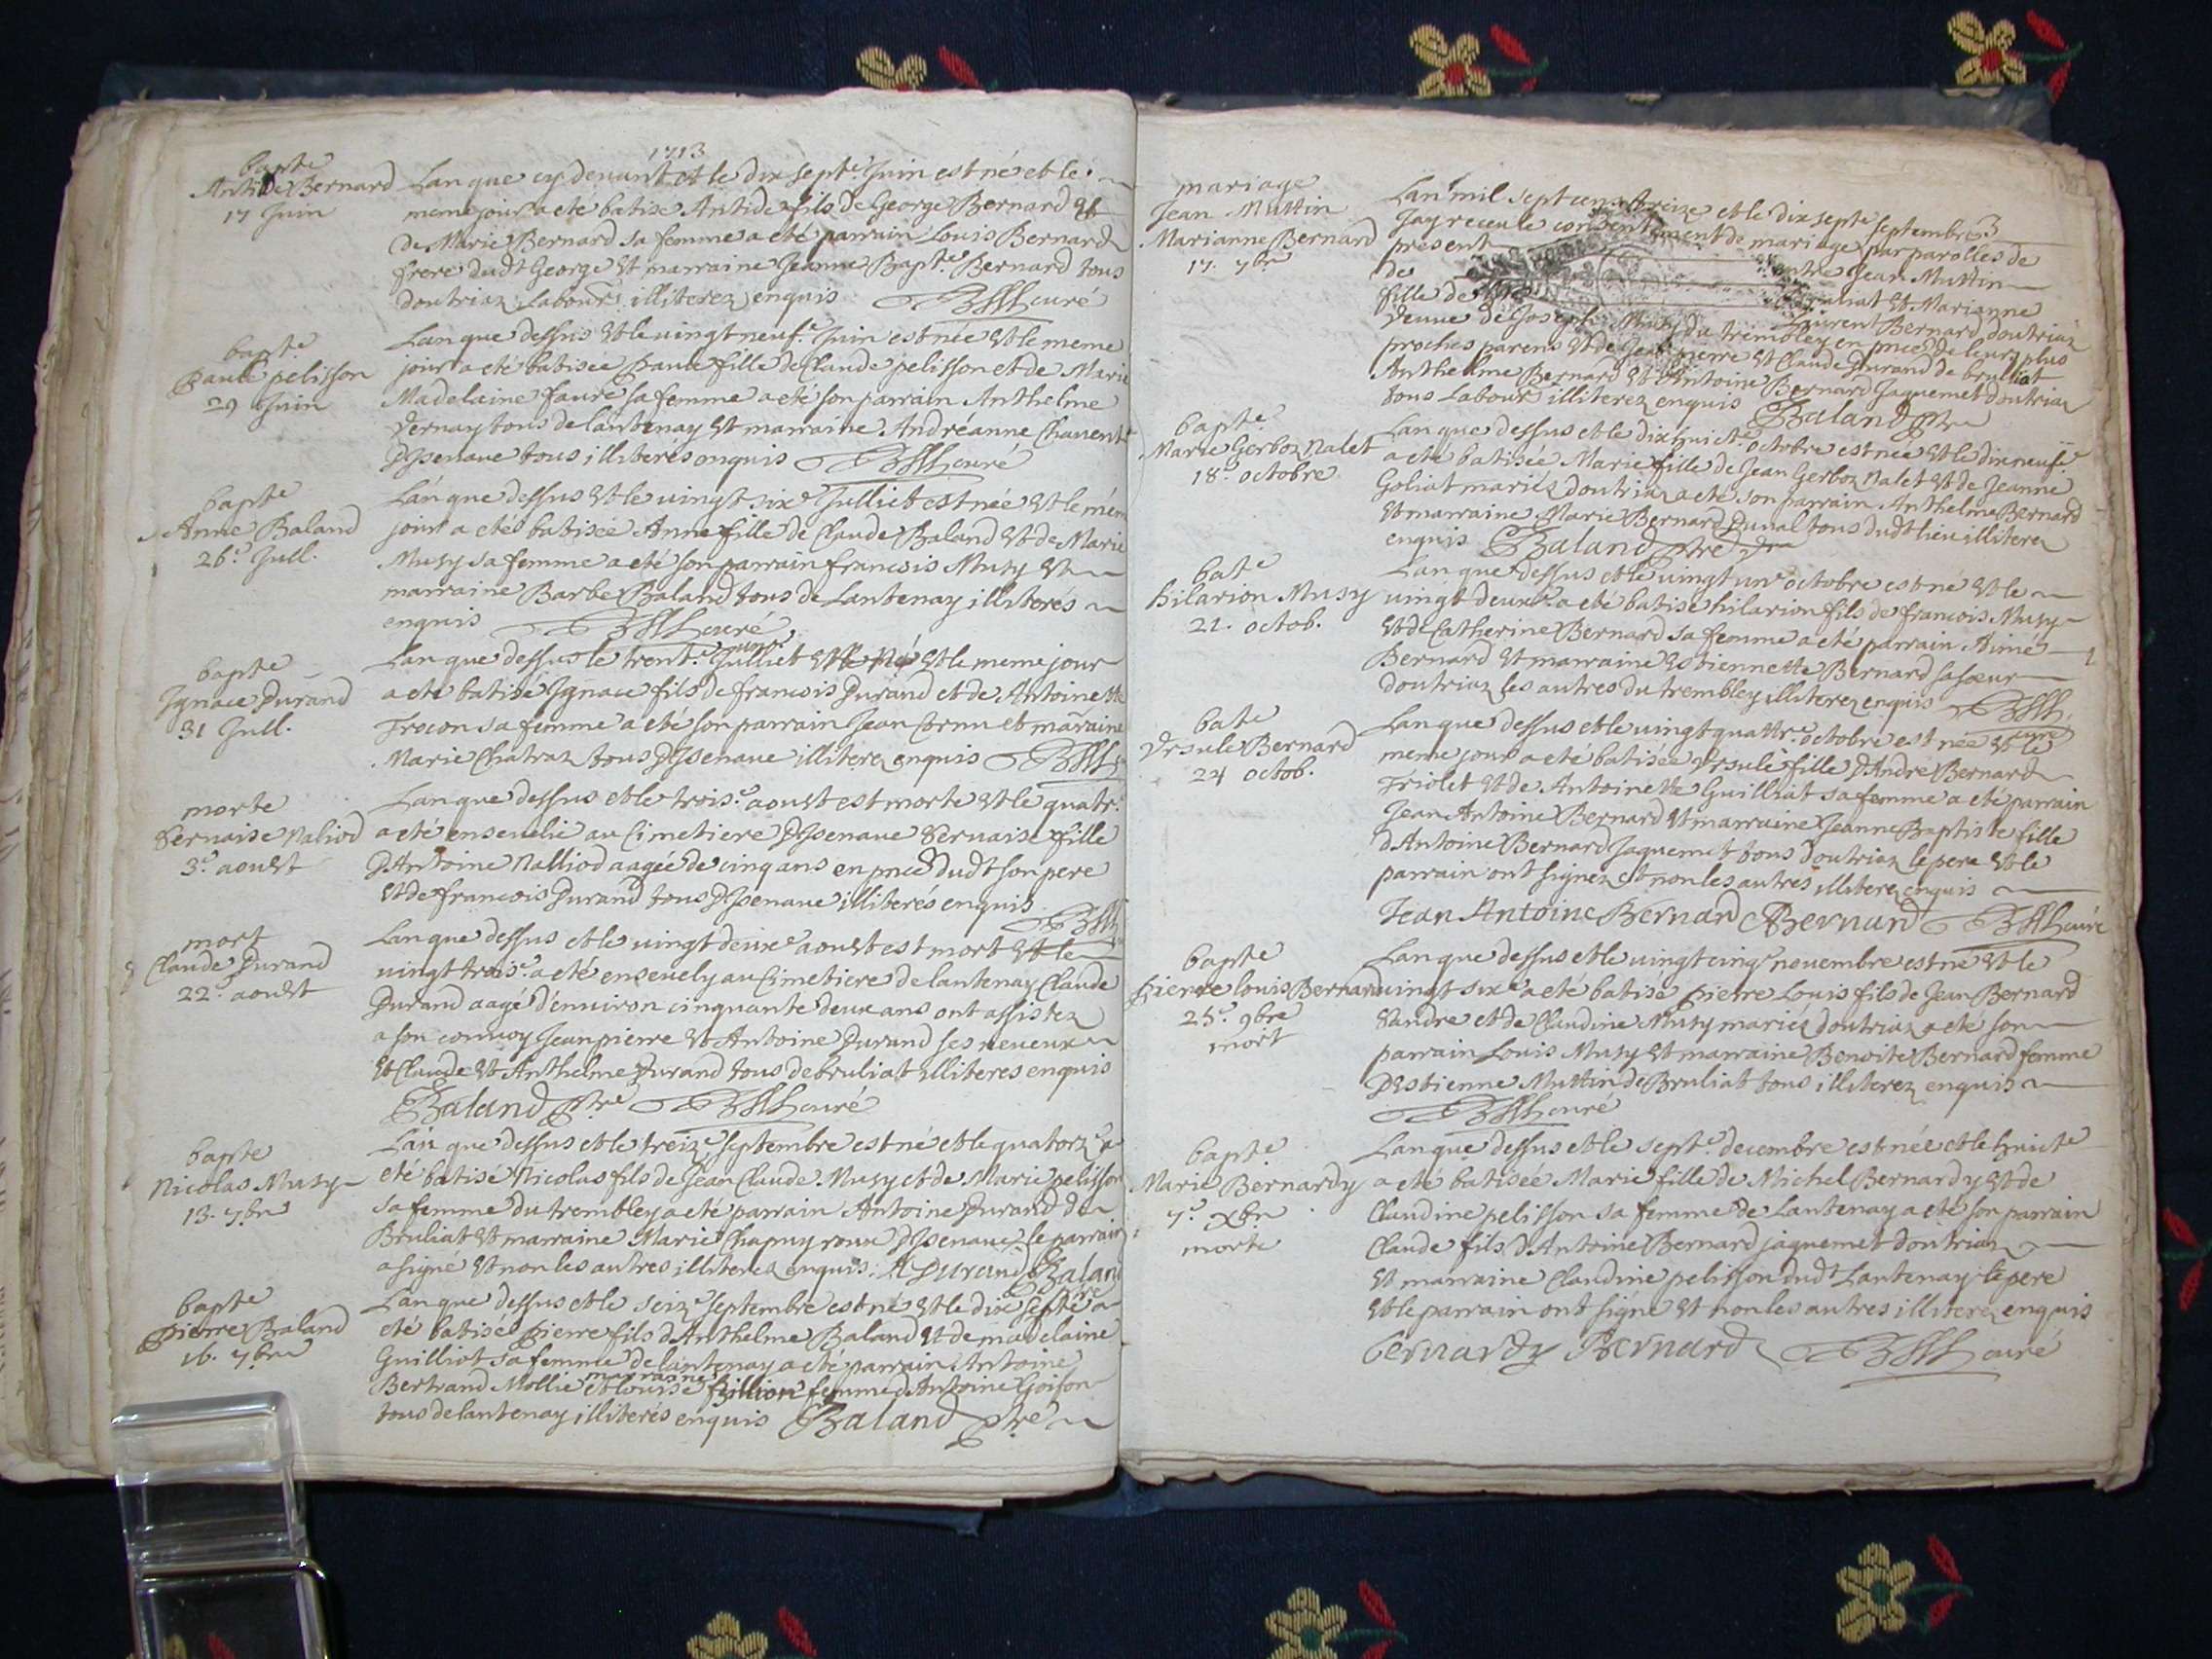 1713
bapte
Antide Bernard
17 Juin
Lan que cy devant et le dix septe Juin est né et le
meme jour a eté batisé Antide fils de George Bernard et
de Marie Bernard sa femme a eté parrain Louis Bernard
frere dudt George et marraine Jeanne Bapte Bernard tous
doutriaz Labours illiterez enquis curé
bapte
Paule pelisson
29 Juin
Lan que dessus et le vingt neufe Juin est née et le meme
jour a eté batisée Paule fille de Claude pelisson et de Marie
Madelaine faure sa femme a eté son parrain Anthelme
Vernay tous de lantenay et marraine Andréanne Chavent
D'Isenave tous illiterés enquis curé
bapte
Anne Baland
26e Jull.
Lan que dessus et le vingt sixe Julliet est née et le mem
jour a eté batisée Anne fille de Claude Baland et de Marie
Musy sa femme a eté son parrain francois Musy et
marraine Barbe Baland tous de Lantenay illiterés
enquis curé
bapte
Ignace Durand
31 Jull.
Lan que dessus le trente unie Julliet et le meme jour
a eté batisé Ignace fils de francois Durand et de Antoinette
Trocon sa femme a eté son parrain Jean Cornu et marraine
Marie Chatraz tous D'Isenave illiterez enquis
morte
Servaise Naliod
3e aoust
Lan que dessus et le troise aoust est morte et le quatre
a eté ensevelie au Cimetiere D'Isenave Servaise fille
D'Antoine Nalliod aagée de cinq ans en pnce dudt son pere
et de francois Durand tous D'Isenave illiterés enquis
mort
Claude Durand
22e aoust
Lan que dessus et le vingt deuxe aoust est mort et le
vingt troise a eté ensevely au Cimetiere de lantenay Claude
Durand aagé d'environ cinquante deux ans ont assistez
a son convoy Jean pierre et Antoine Durand ses neveux
et Claude et Anthelme Durand tous de bruliat illiteres enquis
Baland ptre curé
bapte
Nicolas Musy
13. 7bre
Lan que dessus et le treize septembre est né et le quatorze a
eté batisé Nicolas fils de Jean Claude Musy et de Marie pelisson
sa femme du trembley a eté parrain Antoine Durand de
Bruliat et marraine Marie Chapuy roux D'Isenave le parrain
a signé et non les autres illiterez enquis. A Durand Baland
bapte
Pierre Baland
16. 7bre
Lan que dessus et le seize septembre est né et le dix septe a
eté batisé Pierre fils d'Anthelme Baland et de madelaine
Guilliot sa femme de lantenay a eté parrain Antoine
marraine
Bertrand Mollie et Louise femme d'Antoine Goison
tous de lantenay illiterés enquis Baland ptre
mariage
Jean Muttin
Marianne Bernard
17. 7bre
Lan mil sept cens treize et le dix septe septembre
Jay receu le consentement de mariage par parolles de
present entre Jean Muttin
de Bruliat et Marianne
fille de Laurent Bernard doutriaz
veuve de Joseph Musy du trembley en pnce de leurs plus
proches parens et de Jean pierre et Claude Durand de bruliat
Anthelme Bernard et Antoine Bernard Jaquemet doutriaz
tous Labours illiterez enquis Baland ptre
bapte
Marie Gorboz Nalet
18e octobre
Lan que dessus et le dixhuicte octobre est née et le dixneufe
a eté batisée Marie fille de Jean Gorboz Nalet et de Jeanne
Goliat mariez doutriaz a eté son parrain Anthelme Bernard
et marraine Marie Bernard Duval tous dudt lieu illiterez
enquis Baland ptre
bate
hilarion Musy
21. octob.
Lan que dessus et le vingt une octobre est né et le
vingt deuxe a eté batisé hilarion fils de francois Musy
et de Catherine Bernard sa femme a eté parrain Aimé
Bernard et marraine Estiennette Bernard sa soeur
doutriaz les autres du trembley illiterez enquis
curé
bate
Ursule Bernard
24 octob.
Lan que dessus et le vingt quattre octobre est née et le
meme jour a eté batisée Ursule fille D'André Bernard
Triolet et de Antoinette Guilliat sa femme a eté parrain
Jean Antoine Bernard et marraine Jeanne Baptiste fille
d'Antoine Bernard Jaquemet tous doutriaz le pere et le
parrain ont signez et non les autres illiterez enquis
Jean Antoine Bernard Bernard curé
bapte
Pierre louis Bernard
25e 9bre
mort
Lan que dessus et le vingt cinqe novembre est né et le
vingt sixe a eté batisé pierre Louis fils de Jean Bernard
Vandre et de Claudine Musy mariez doutriaz a eté son
parrain Louis Musy et marraine Benoite Bernard femme
D'Estienne Muttin de Bruliat tous illiterez enquis
curé
bapte
Marie Bernardy
7e Xbre
morte
Lan que dessus et le septe decembre est née et le huicte
a eté batisée Marie fille de Michel Bernardy et de
Claudine pelisson sa femme de Lantenay a eté son parrain
Claude fils d'Antoine Bernard jaquemet doutriaz
et marraine Claudine pelisson dudt Lantenay le pere
et le parrain ont signé et non les autres illiterez enquis
bernardy Bernard curé